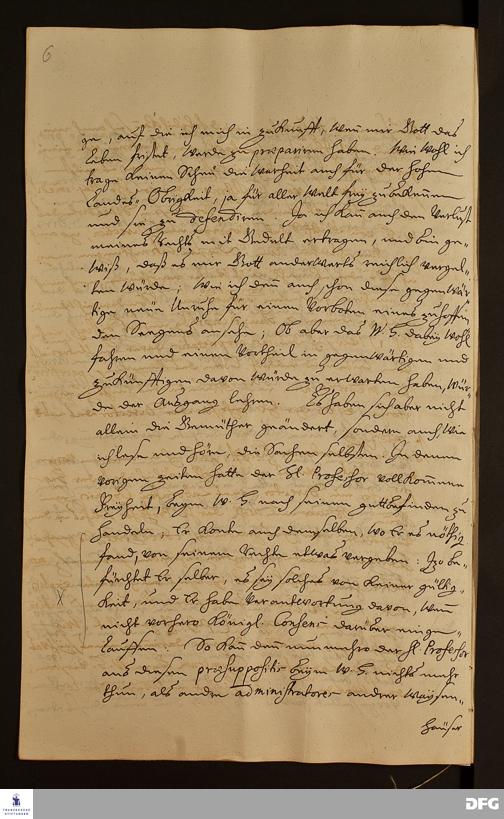 6
ge, auf die ich mich in zukunfft, wenn mir Gott das
Leben fristet, werde zu praepariren haben. Wie wohl ich
trage keinen Scheu die warheit auch für der hohen
Landes-Obrigkeit, ja für aller Welt frey zu bekennen
und sie zu defendiren. Ja ich kan auch den Verlust
meines Rechts mit Gedult ertragen, und bin ge-
wiß, daß es mir Gott anderwerts reichlich vergel-
ten würde; wie ich denn auch schon diese gegenwär-
tige neue Unruhe für einen Vorboten eines zuhoffen-
den Seegens ansehe; Ob aber das W. H. dabey wohl
fahren und einen Vortheil in gegenwärtigen und
zukünfftigen davon würde zu erwarten haben, wür-
de der Außgang lehren. Es haben sich aber nicht
allein die Gemüther geändert, sondern auch wie
ich lese und höre, die Sachen selbsten. In denen
vorigen zeiten hatte der H. Professor vollkommene
Freyheit, beym W. H. nach seinem guttbefinden zu
handeln, Er konte auch demselben, wo Er es nöthig
fand, von seinem Rechte etwas vergeben: Izo be-
fürchtet Er selber, es sey solches von keiner gültig-
keit, und Er habe Verantwortung davon, wenn
nicht vorhero Königl. Consens darüber einge-
lauffen. So kan denn nunmehro der H. Professor
aus diesen praesuppositis beym W. H. nichts mehr
thun, als andre administratores andrer Waysen-
häuser
FRANCKESCHE STIFTUNGEN
DFG